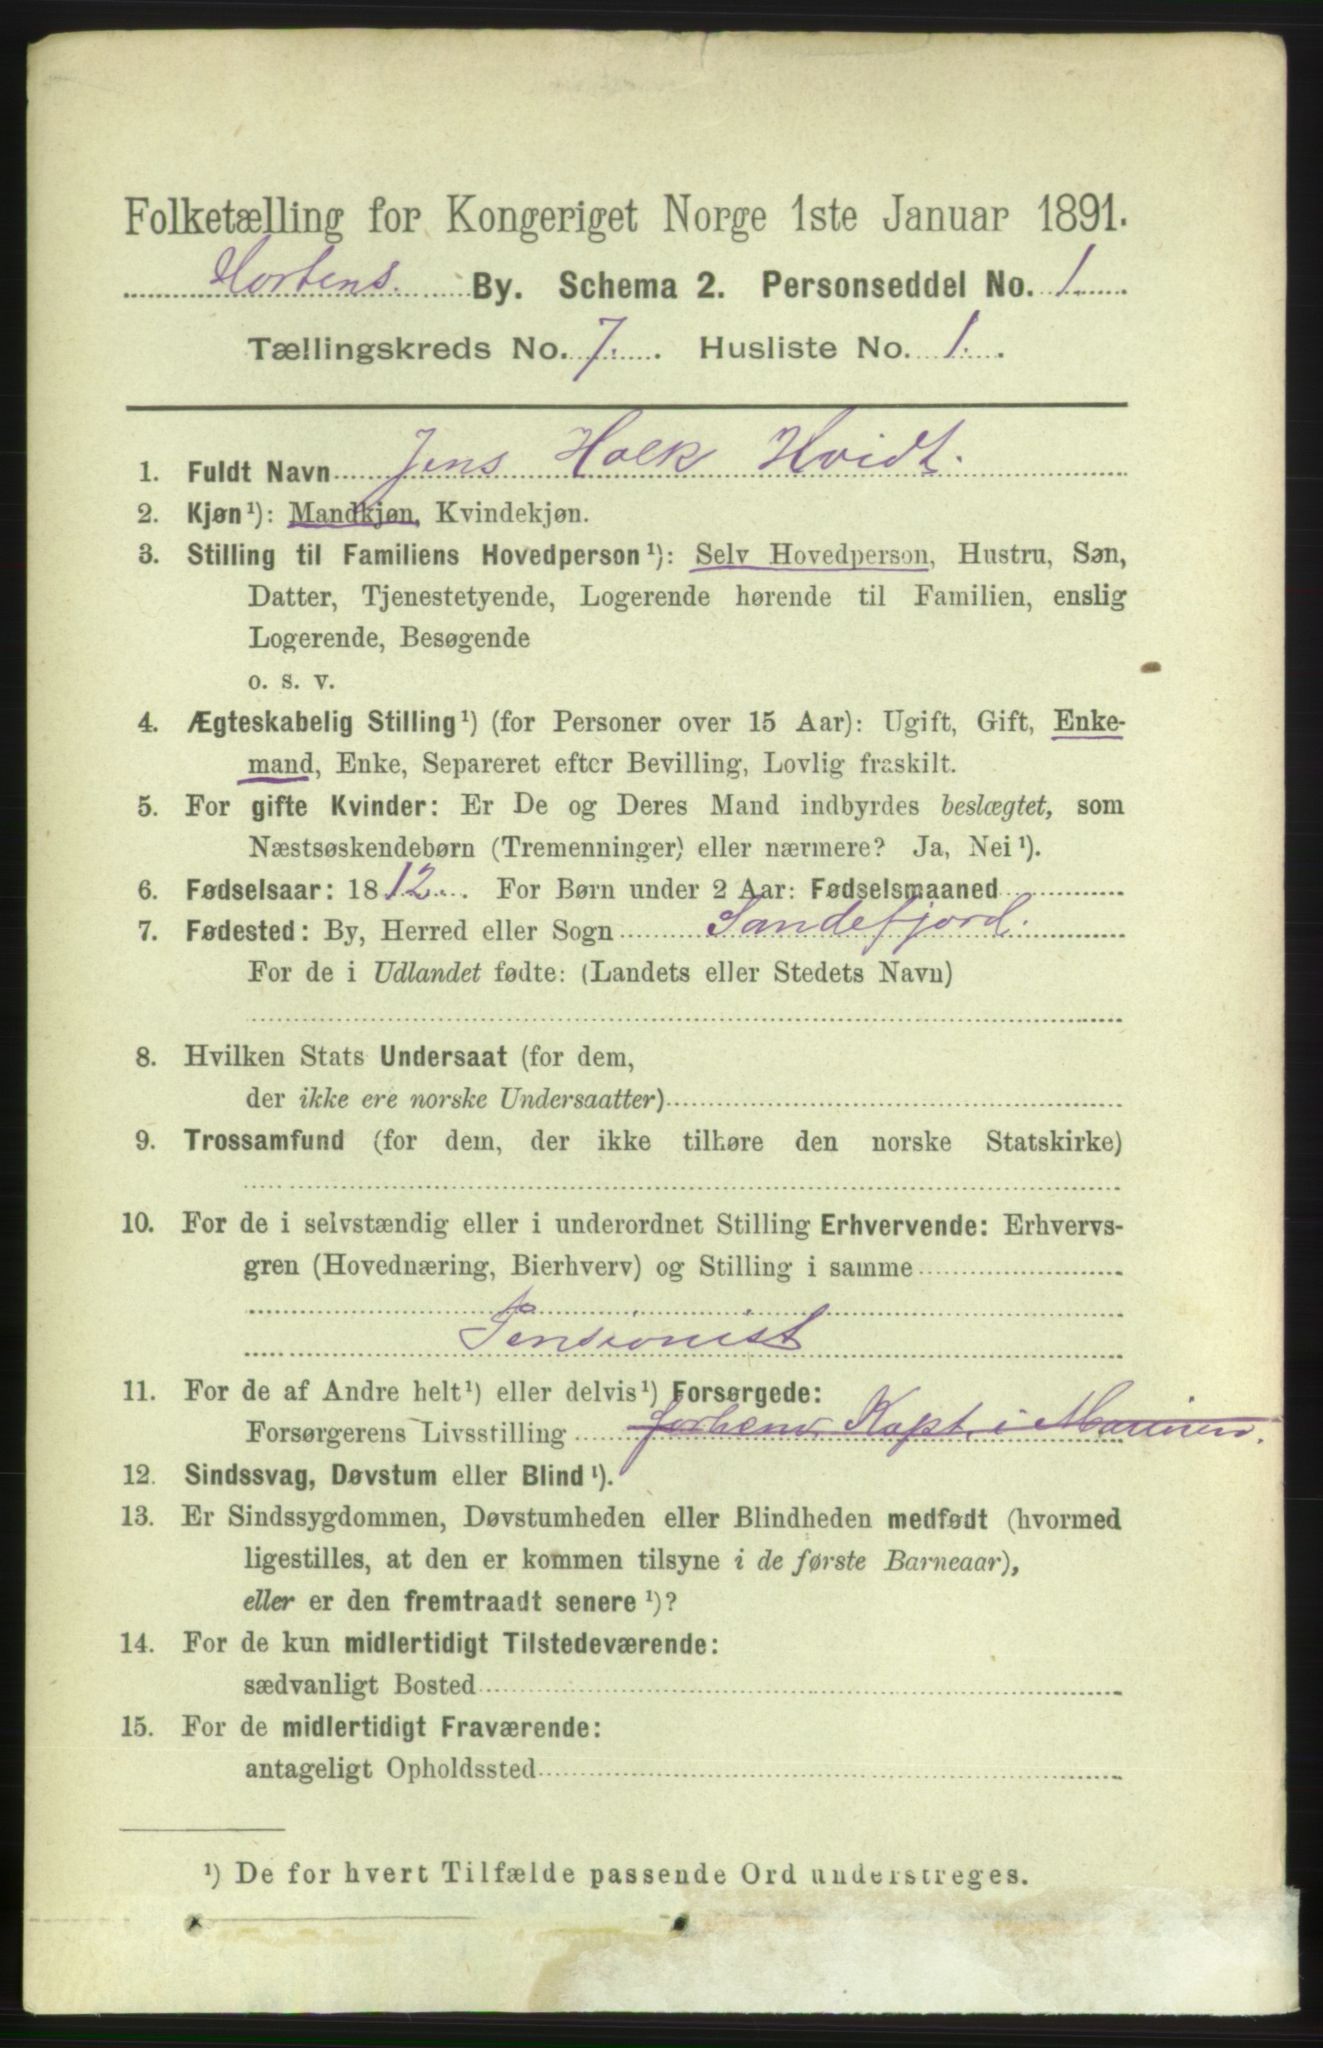 Folketælling for Kongeriget Norge 1ste Januar 1891.
Hortens. By. Schema 2. Personseddel No. 1.
Tællingskreds No. 7. Husliste No. 1.
1. Fuldt Navn Jens Holck Hvidt.
2. Kjøn¹): Mandkjøn, Kvindekjøn.
3. Stilling til Familiens Hovedperson¹): Selv Hovedperson, Hustru, Søn,
Datter, Tjenestetyende, Logerende hørende til Familien, enslig
Logerende, Besøgende
o. s. v.
4. Ægteskabelig Stilling¹) (for Personer over 15 Aar): Ugift, Gift, Enke-
mand, Enke, Separeret efter Bevilling, Lovlig fraskilt.
5. For gifte Kvinder: Er De og Deres Mand indbyrdes beslægtet, som
Næstsøskendebørn (Tremenninger) eller nærmere? Ja, Nei¹).
6. Fødselsaar: 1812. For Børn under 2 Aar: Fødselsmaaned
7. Fødested: By, Herred eller Sogn Sandefjord.
For de i Udlandet fødte: (Landets eller Stedets Navn)
8. Hvilken Stats Undersaat (for dem,
der ikke ere norske Undersaatter)
9. Trossamfund (for dem, der ikke tilhøre den norske Statskirke)
10. For de i selvstændig eller i underordnet Stilling Erhvervende: Erhvervs-
gren (Hovednæring, Bierhverv) og Stilling i samme
Pensionist
11. For de af Andre helt¹) eller delvis¹) Forsørgede:
Forsørgerens Livsstilling forhenv. Kapt. i Marinen.
12. Sindssvag, Døvstum eller Blind¹).
13. Er Sindssygdommen, Døvstumheden eller Blindheden medfødt (hvormed
ligestilles, at den er kommen tilsyne i de første Barneaar),
eller er den fremtraadt senere¹)?
14. For de kun midlertidigt Tilstedeværende:
sædvanligt Bosted
15. For de midlertidigt Fraværende:
antageligt Opholdssted
¹) De for hvert Tilfælde passende Ord understreges.